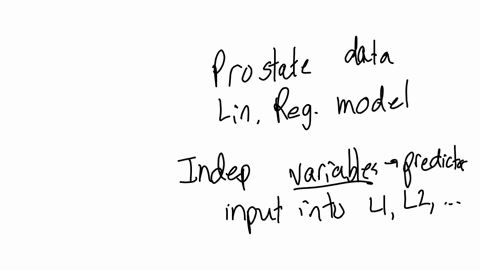 Prostate data
Lin. Reg. model
Indep variables → predictor
input into L1, L2, ...